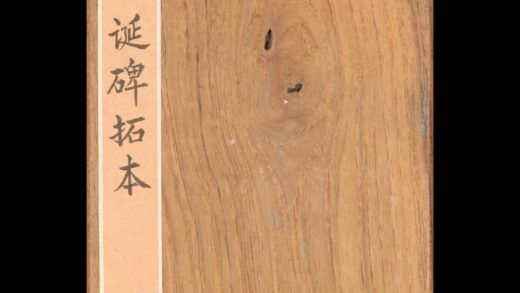 诞碑拓本